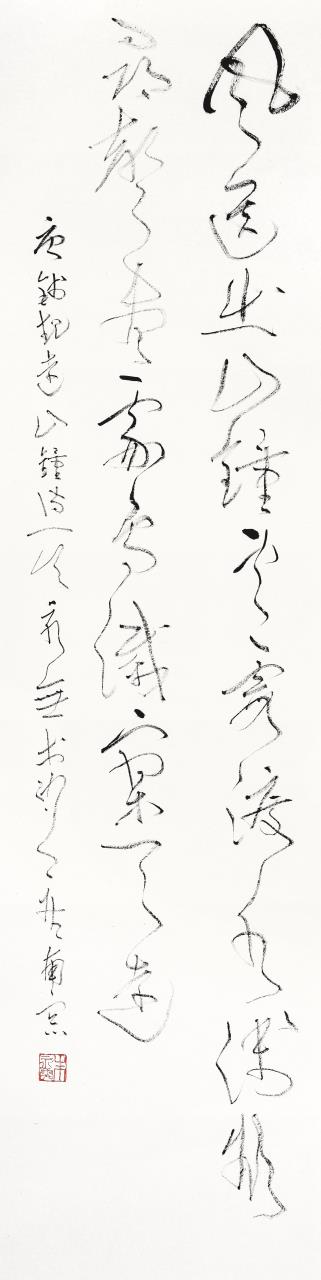 風送出山鐘雲霞渡水淺欲
尋聲盡處鳥滅寥天遠
唐錢起遠山鐘詩一首